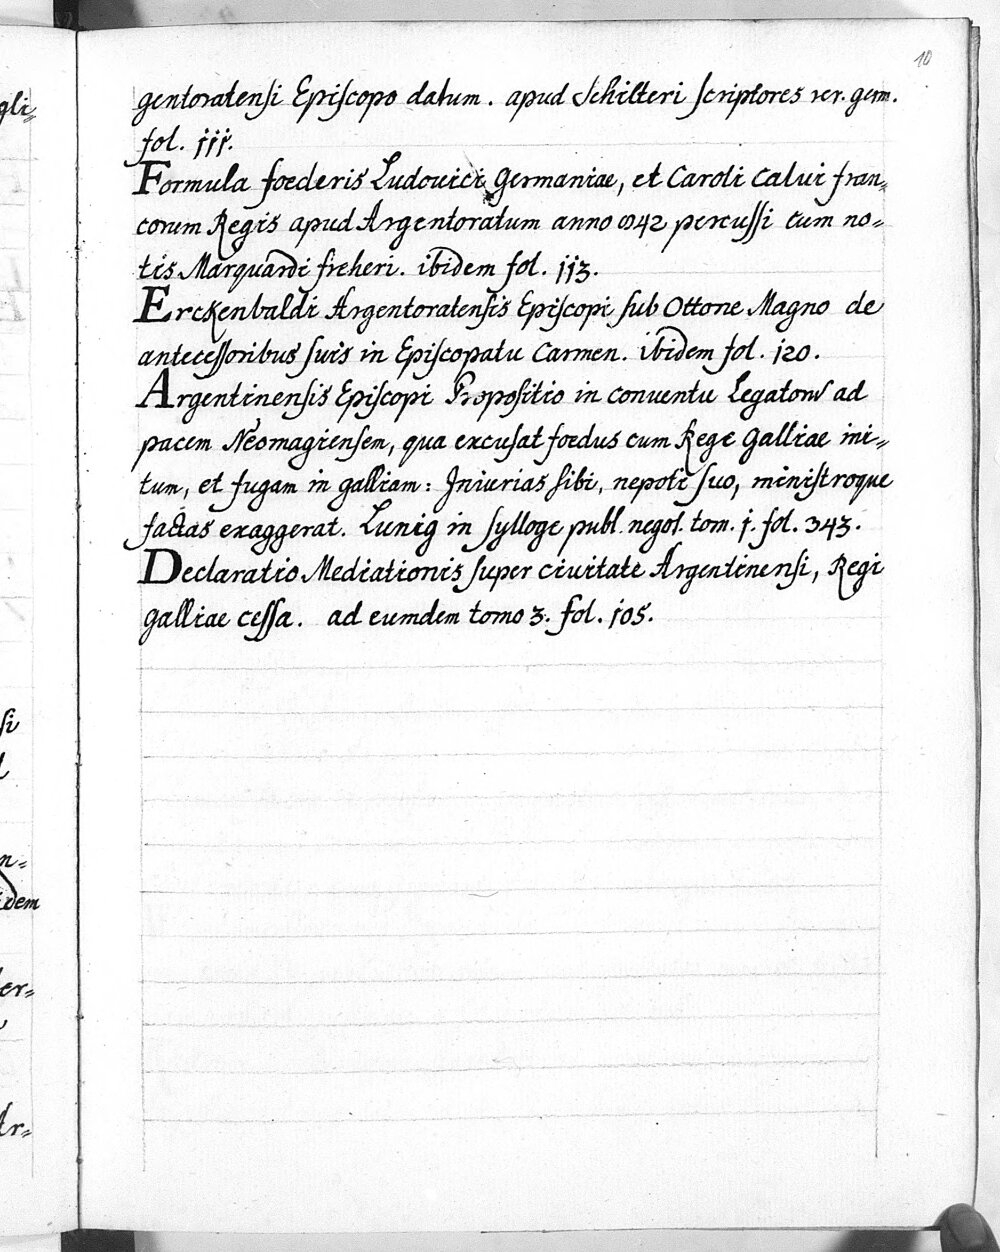 10
gentoratensi Episcopo datum. apud Schilteri scriptores rer. germ.
fol. 111.
Formula foederis Ludovici Germaniae, et Caroli Calui fran=
corum Regis apud Argentoratum anno 842 percussi cum no=
tis Marquardi freheri. ibidem fol. 113.
Erckenbaldi Argentoratensis Episcopi sub Ottone Magno de
antecessoribus suis in Episcopatu Carmen. ibidem fol. 120.
Argentinensis Episcopi Propositio in conventu Legatorum ad
pacem Neomagiensem, qua excusat foedus cum Rege Galliae ini=
tum, et fugam in galliam: Iniurias sibi, nepoti suo, ministroque
factas exaggerat. Lunig in sylloge publ. negot. tom. 1. fol. 343.
Declaratio Mediationis super ciuitate Argentinensi, Regi
Galliae cessa. ad eumdem tomo 3. fol. 105.
gli=
si
n=
idem
er=
Ar=